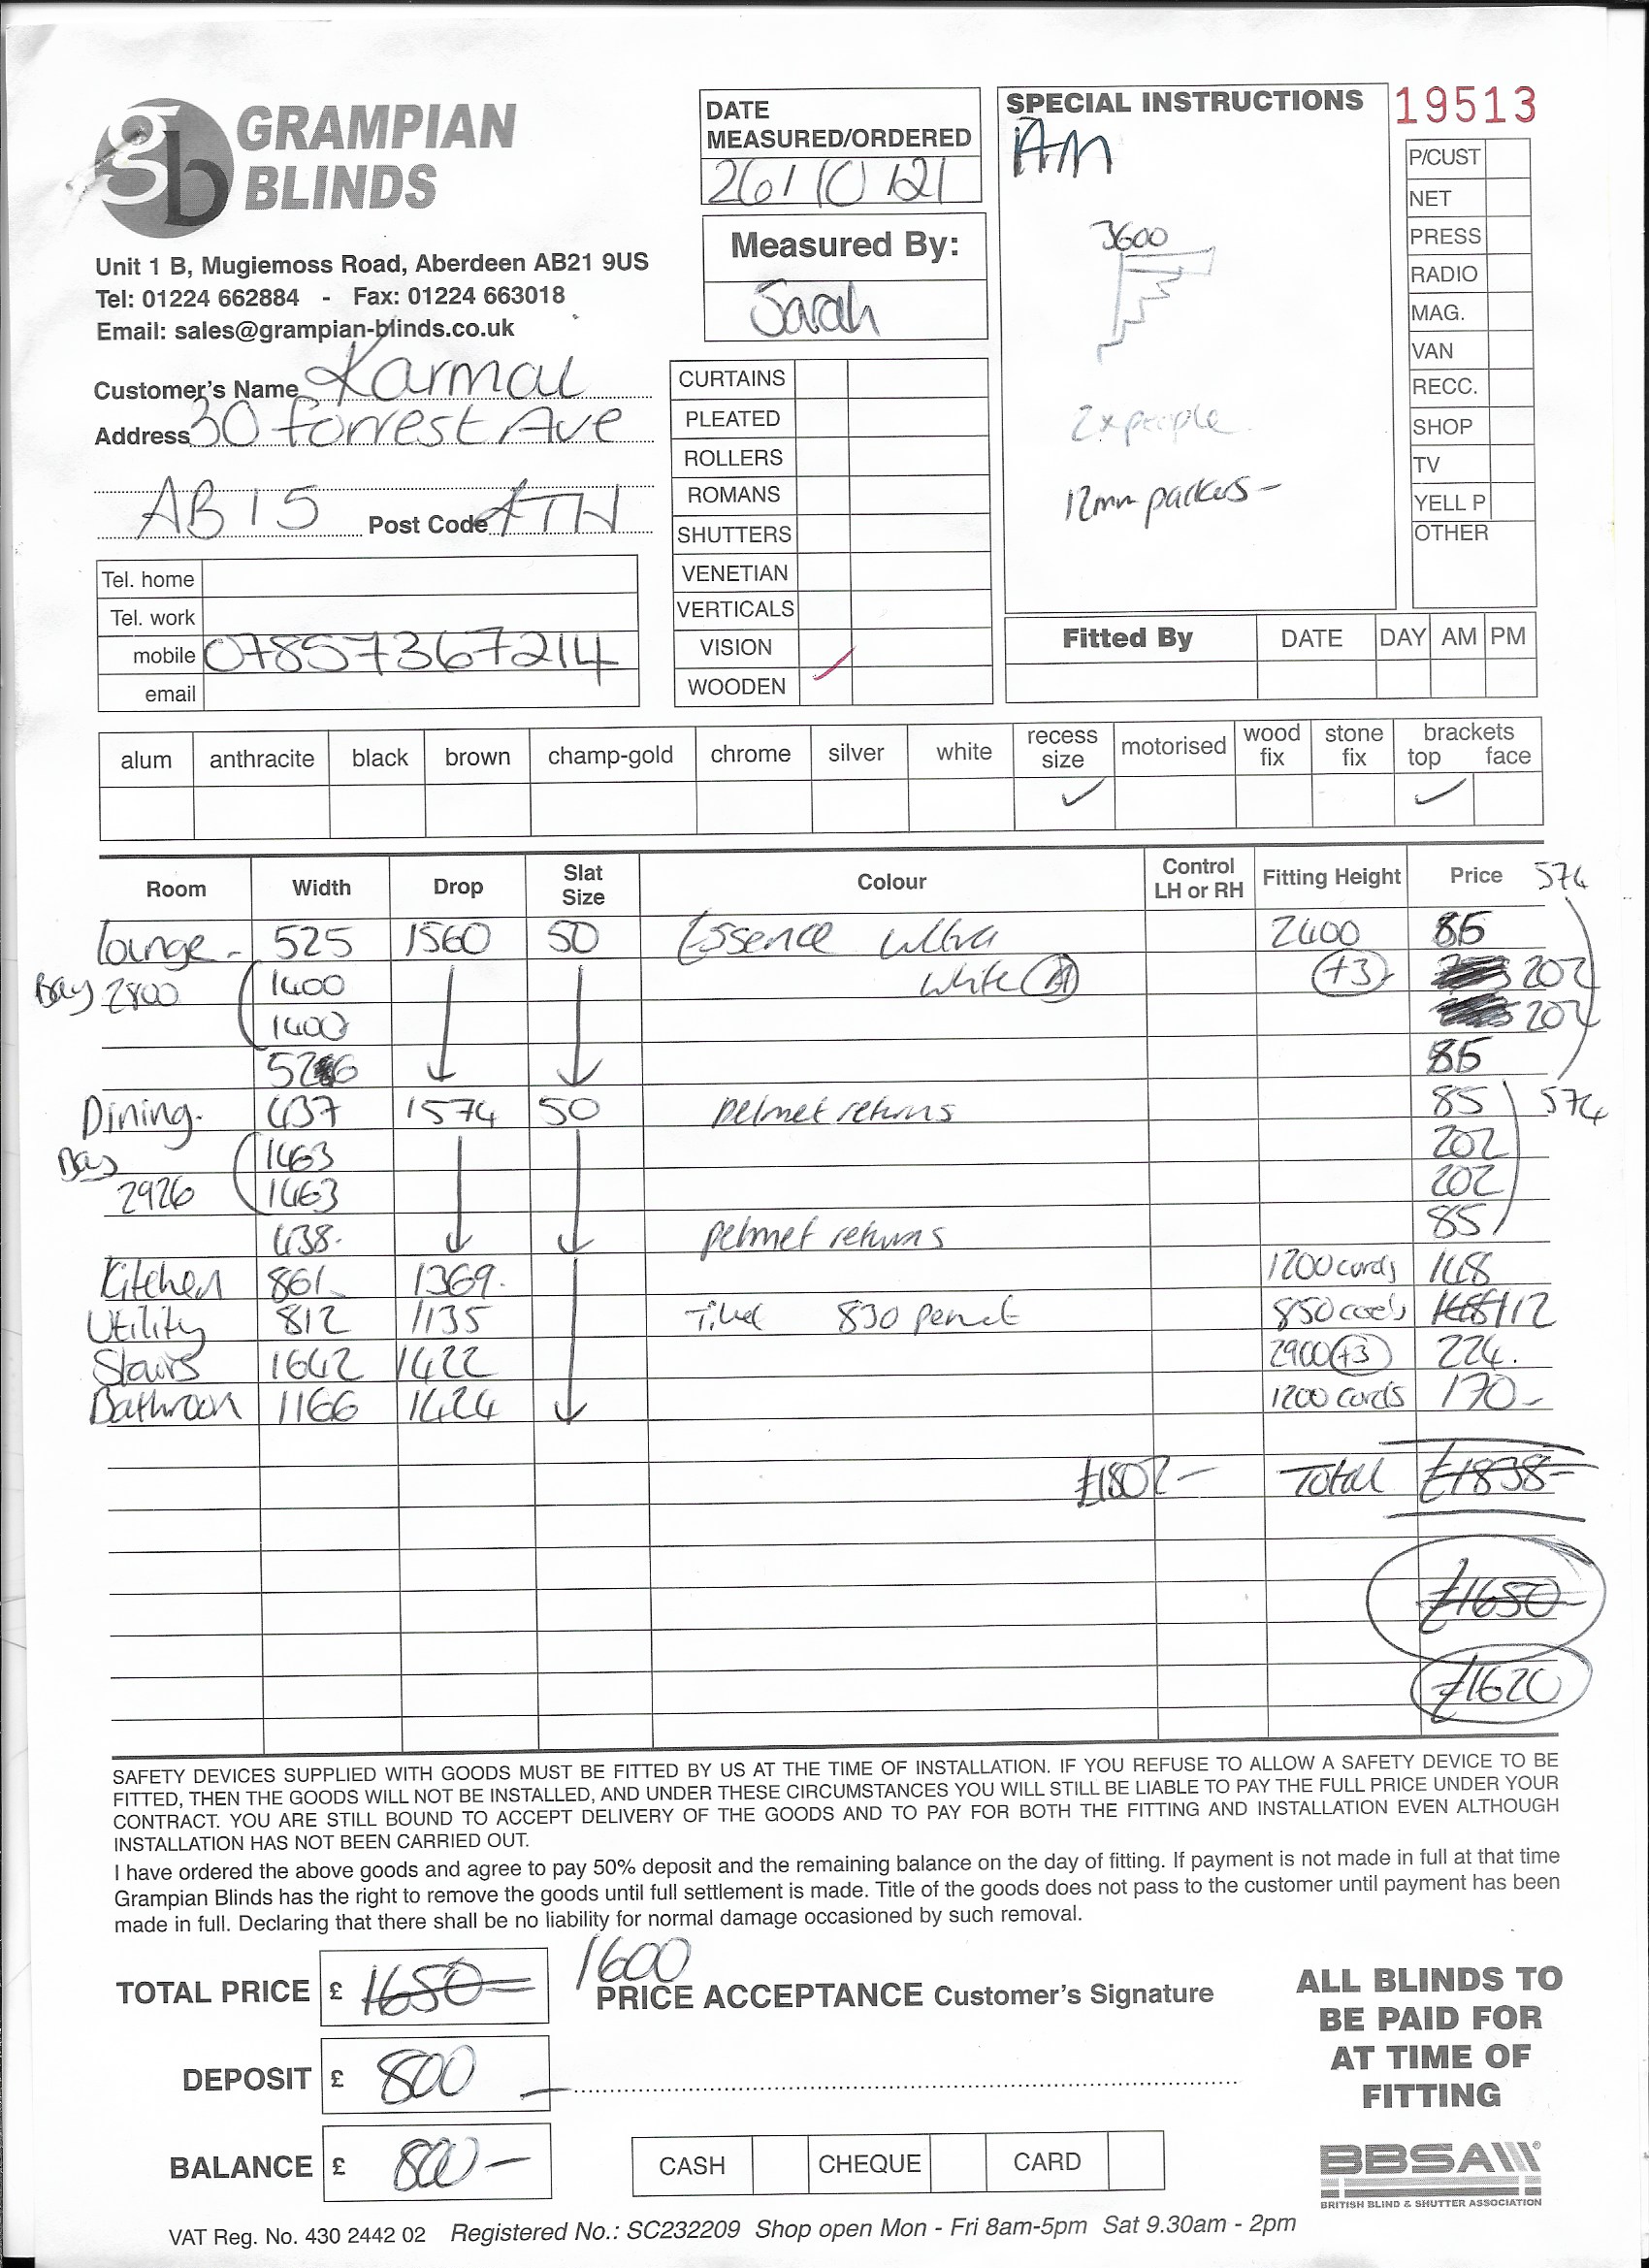 GRAMPIAN
BLINDS
Unit 1 B, Mugiemoss Road, Aberdeen AB21 9US
Tel: 01224 662884 - Fax: 01224 663018
Email: sales@grampian-blinds.co.uk
Customer's Name Karmal
Address 30 Forrest Ave
AB15 Post Code 4TH
Tel. home
Tel. work
mobile 07857367214
email
DATE
MEASURED/ORDERED
26/10/21
Measured By:
Sarah
CURTAINS
PLEATED
ROLLERS
ROMANS
SHUTTERS
VENETIAN
VERTICALS
VISION
WOODEN
SPECIAL INSTRUCTIONS
AM
3600
2x people
12mm packers -
19513
P/CUST
NET
PRESS
RADIO
MAG.
VAN
RECC.
SHOP
TV
YELL P
OTHER
Fitted By DATE DAY AM PM
alum anthracite black brown champ-gold chrome silver white recess size motorised wood fix stone fix brackets top face
Room Width Drop Slat Size Colour Control LH or RH Fitting Height Price 574
Lounge - 525 1560 50 Essence ultra 2400 85
Bay 2800 1400 white (A) (+3) 202
1400 202
526 85
Dining. 437 1574 50 pelmet returns 85 574
Bay 1463 202
2926 1463 202
438. pelmet returns 85
Kitchen 861 1369. 1200 cords 148
Utility 812 1135 Tiled 830 pelmet 850 cords 148 112
Stairs 1642 1422 2900 (+3) 224.
Bathroom 1166 1424 1200 cords 170-
£1802- Total £1838-
£1650
£1620
SAFETY DEVICES SUPPLIED WITH GOODS MUST BE FITTED BY US AT THE TIME OF INSTALLATION. IF YOU REFUSE TO ALLOW A SAFETY DEVICE TO BE
FITTED, THEN THE GOODS WILL NOT BE INSTALLED, AND UNDER THESE CIRCUMSTANCES YOU WILL STILL BE LIABLE TO PAY THE FULL PRICE UNDER YOUR
CONTRACT. YOU ARE STILL BOUND TO ACCEPT DELIVERY OF THE GOODS AND TO PAY FOR BOTH THE FITTING AND INSTALLATION EVEN ALTHOUGH
INSTALLATION HAS NOT BEEN CARRIED OUT.
I have ordered the above goods and agree to pay 50% deposit and the remaining balance on the day of fitting. If payment is not made in full at that time
Grampian Blinds has the right to remove the goods until full settlement is made. Title of the goods does not pass to the customer until payment has been
made in full. Declaring that there shall be no liability for normal damage occasioned by such removal.
TOTAL PRICE £ 1650 1600
PRICE ACCEPTANCE Customer's Signature
DEPOSIT £ 800
BALANCE £ 800-
CASH CHEQUE CARD
ALL BLINDS TO
BE PAID FOR
AT TIME OF
FITTING
BBSA
BRITISH BLIND & SHUTTER ASSOCIATION
VAT Reg. No. 430 2442 02 Registered No.: SC232209 Shop open Mon - Fri 8am-5pm Sat 9.30am - 2pm